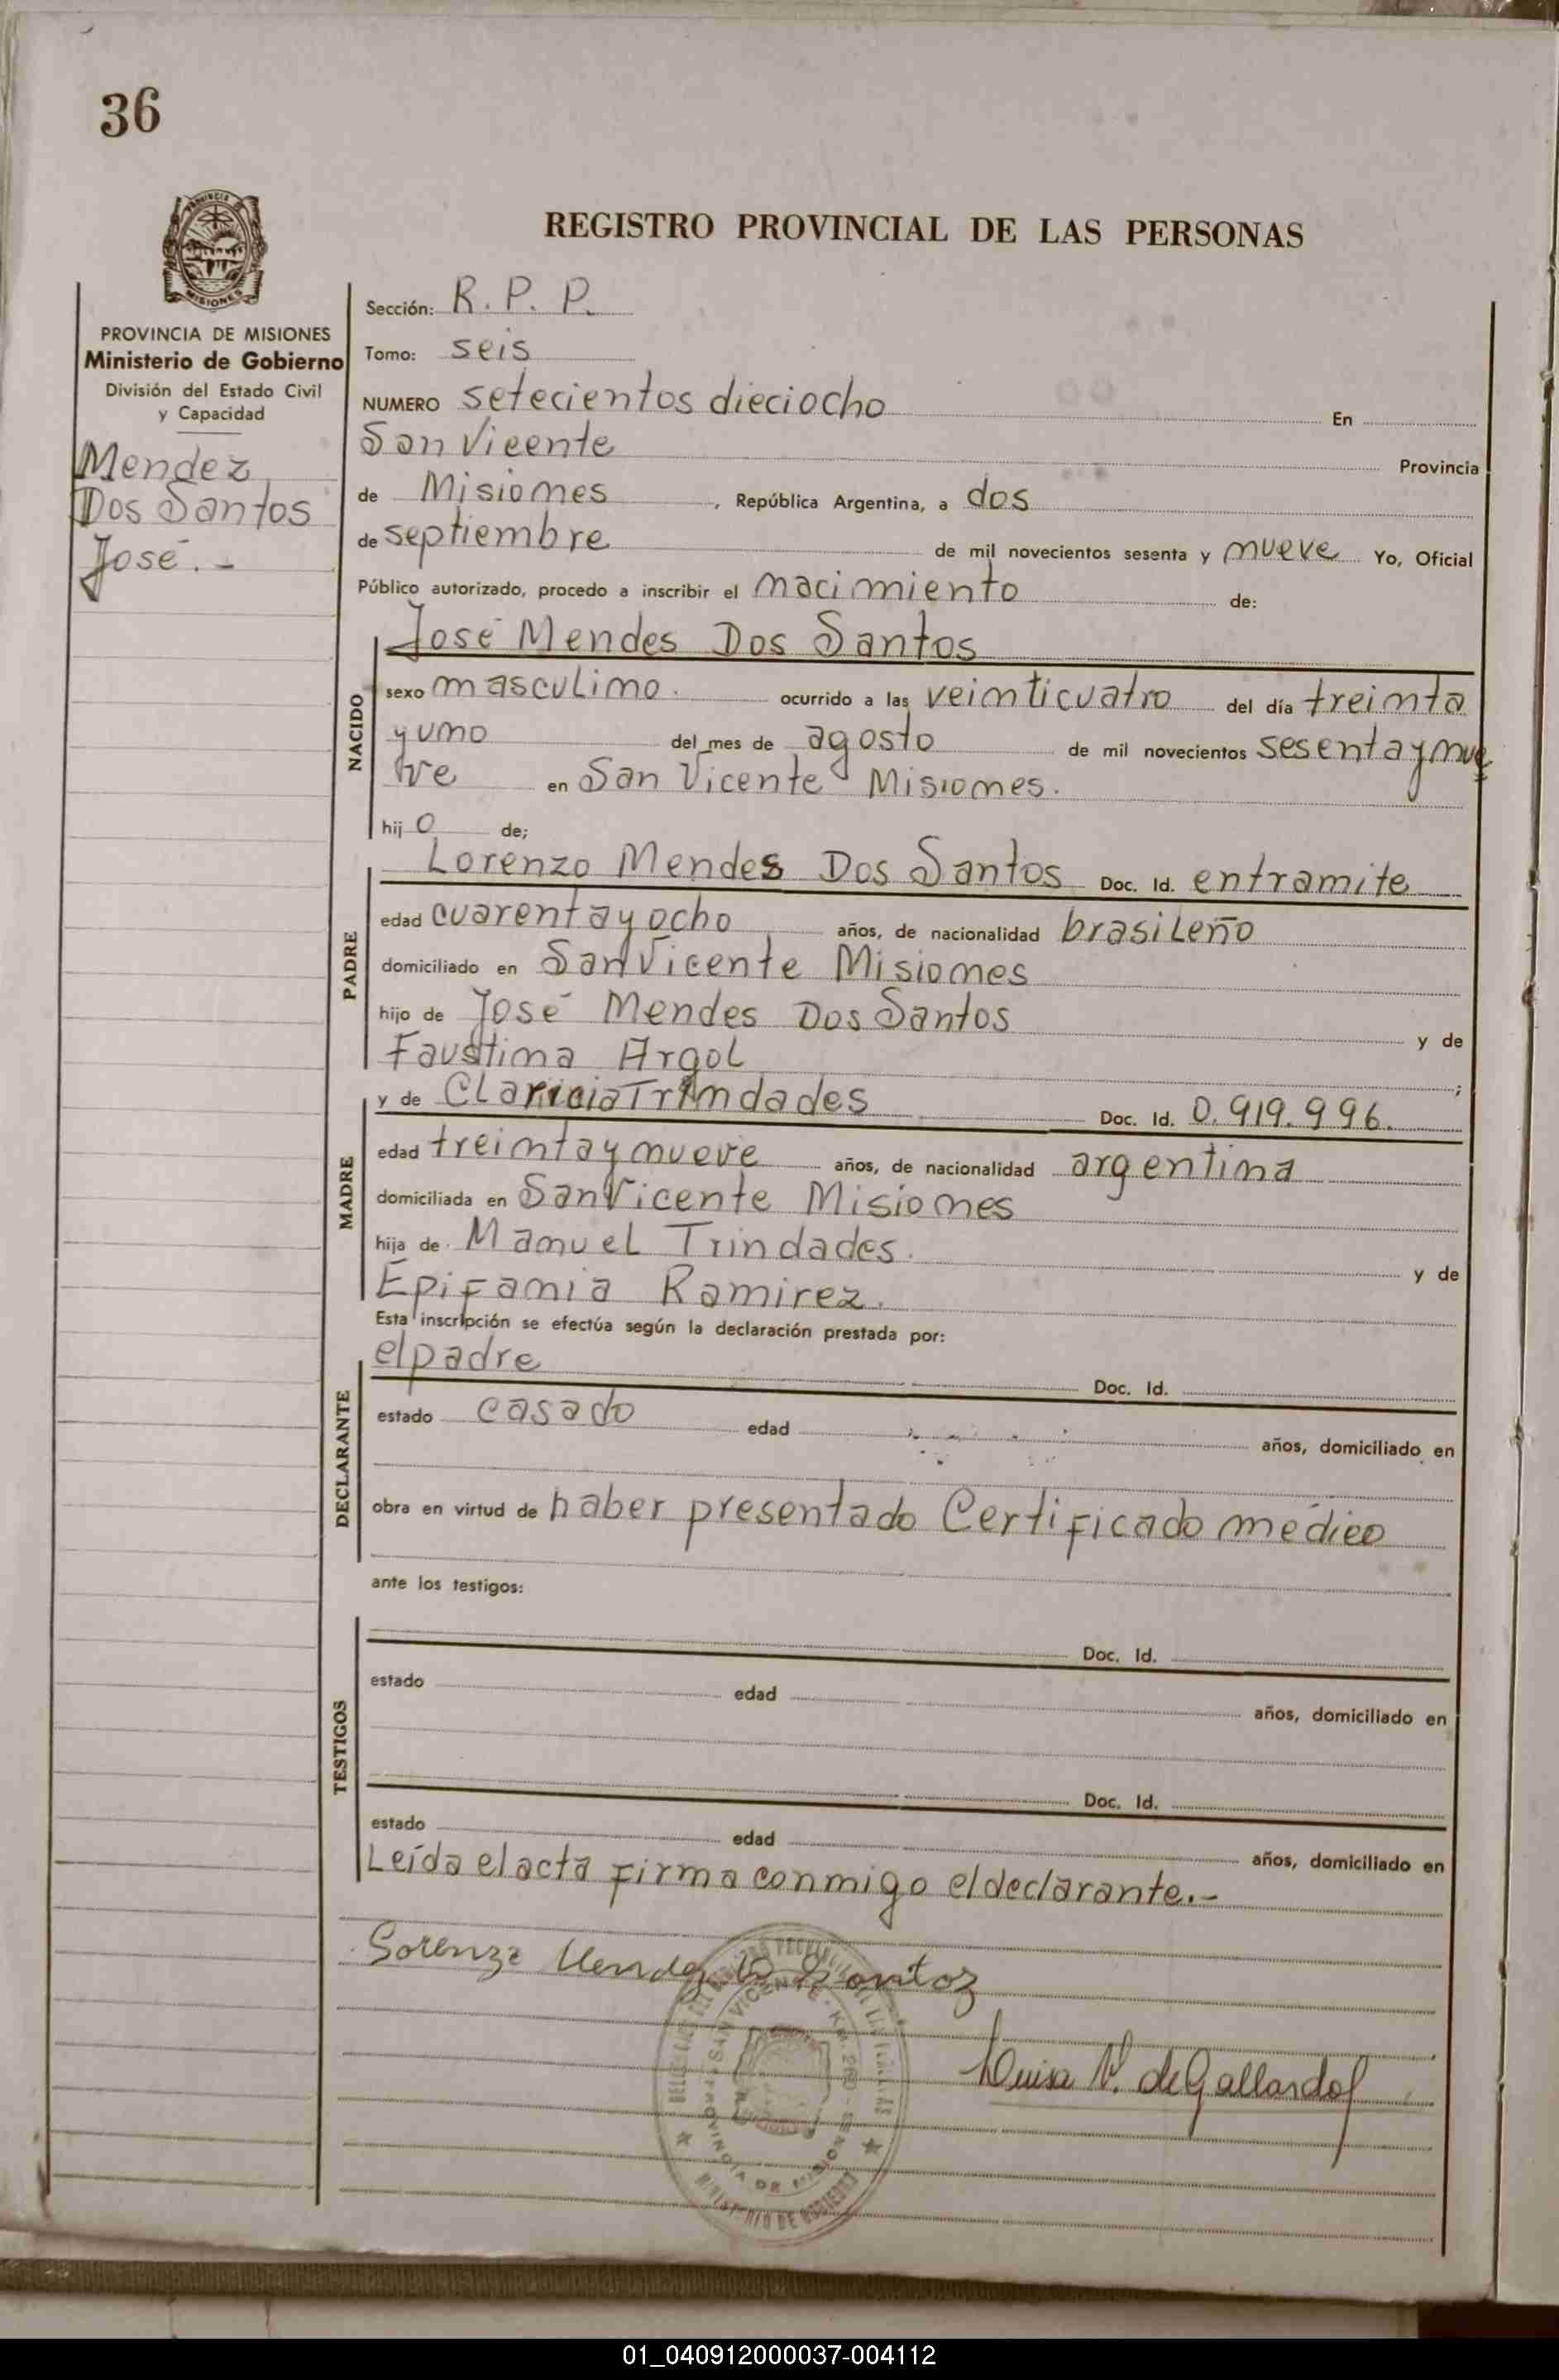 36
PROVINCIA
MISIONES
REGISTRO PROVINCIAL DE LAS PERSONAS
PROVINCIA DE MISIONES
Ministerio de Gobierno
División del Estado Civil
y Capacidad
Mendez
Dos Santos
José.-
Sección: R. P. P.
Tomo: seis
NUMERO setecientos dieciocho En
San Vicente Provincia
de Misiones, República Argentina, a dos
de septiembre de mil novecientos sesenta y nueve Yo, Oficial
Público autorizado, procedo a inscribir el nacimiento de:
José Mendes Dos Santos
NACIDO
sexo masculino. ocurrido a las veinticuatro del día treinta
y uno del mes de agosto de mil novecientos sesenta y nue
ve en San Vicente Misiones.
hij o de;
Lorenzo Mendes Dos Santos Doc. Id. en tramite
PADRE
edad cuarenta y ocho años, de nacionalidad brasileño
domiciliado en San Vicente Misiones
hijo de José Mendes Dos Santos y de
Faustina Argol ;
y de Claricia Trindades Doc. Id. 0.919.996.
MADRE
edad treinta y nueve años, de nacionalidad argentina
domiciliada en San Vicente Misiones
hija de Manuel Trindades. y de
Epifania Ramirez.
Esta inscripción se efectúa según la declaración prestada por:
el padre Doc. Id.
DECLARANTE
estado casado edad años, domiciliado en
obra en virtud de haber presentado Certificado médico
ante los testigos:
Doc. Id.
TESTIGOS
estado edad años, domiciliado en
Doc. Id.
estado edad años, domiciliado en
Leída el acta firma conmigo el declarante.-
Lorenzo Mendes D Santoz
SAN VICENTE - Km. 260
PROVINCIA DE MISIONES
MINISTERIO DE GOBIERNO
Luisa V. de Gallardo
01_040912000037-004112